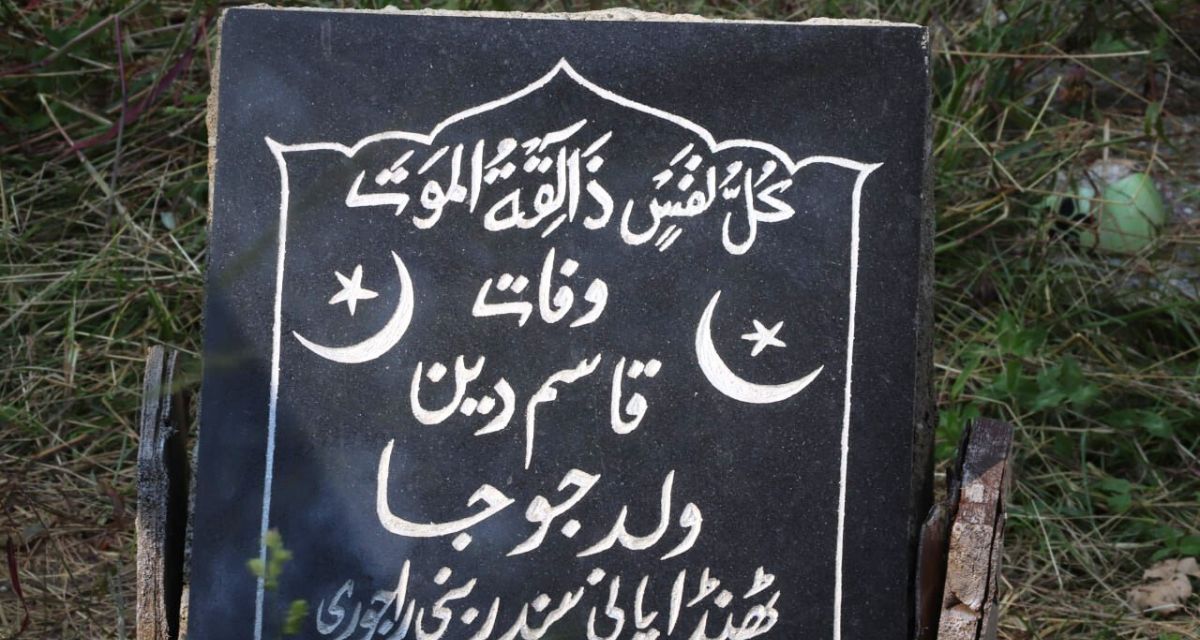 كُلُّ نَفَسٍ ذَائِقَةُ الْمَوَت
وفات
قاسم دین
ولد جو جا
ٹھنڈا پانی سندر بنی راجوری